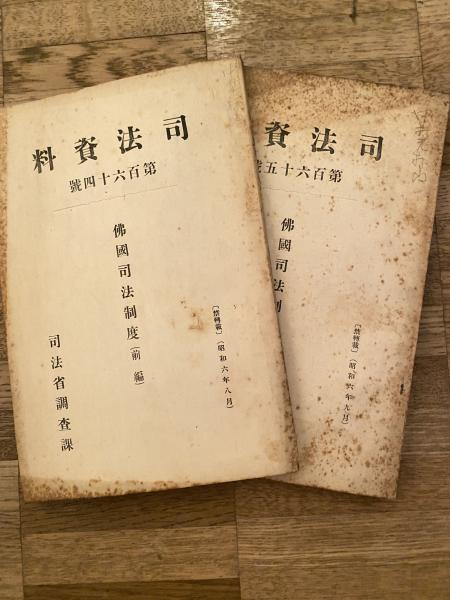 司法資料
第百六十四號
佛國司法制度(前編)
〔禁轉載〕(昭和六年八月)
司法省調査課
司法資
第百六十五號
佛國司法制
〔禁轉載〕(昭和六年九月)